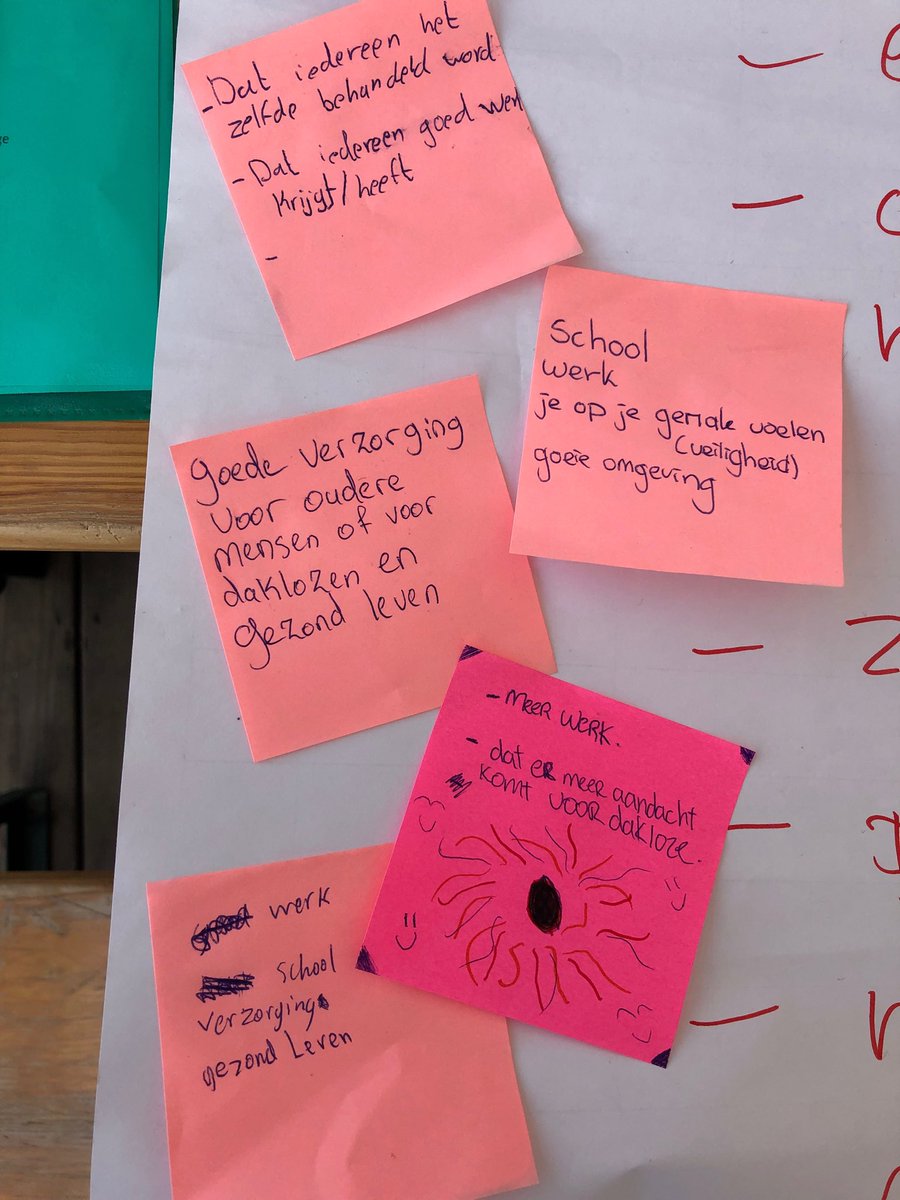 - Dat iedereen het
zelfde behandeld word
- Dat iedereen goed werk
krijgt/heeft
-
School
werk
je op je gemak voelen
(veiligheid)
goeie omgeving
goede verzorging
voor oudere
mensen of voor
daklozen en
gezond leven
- MEER WERK.
- dat er meer aandacht
komt voor dakloze.
werk
school
verzorging
gezond Leven